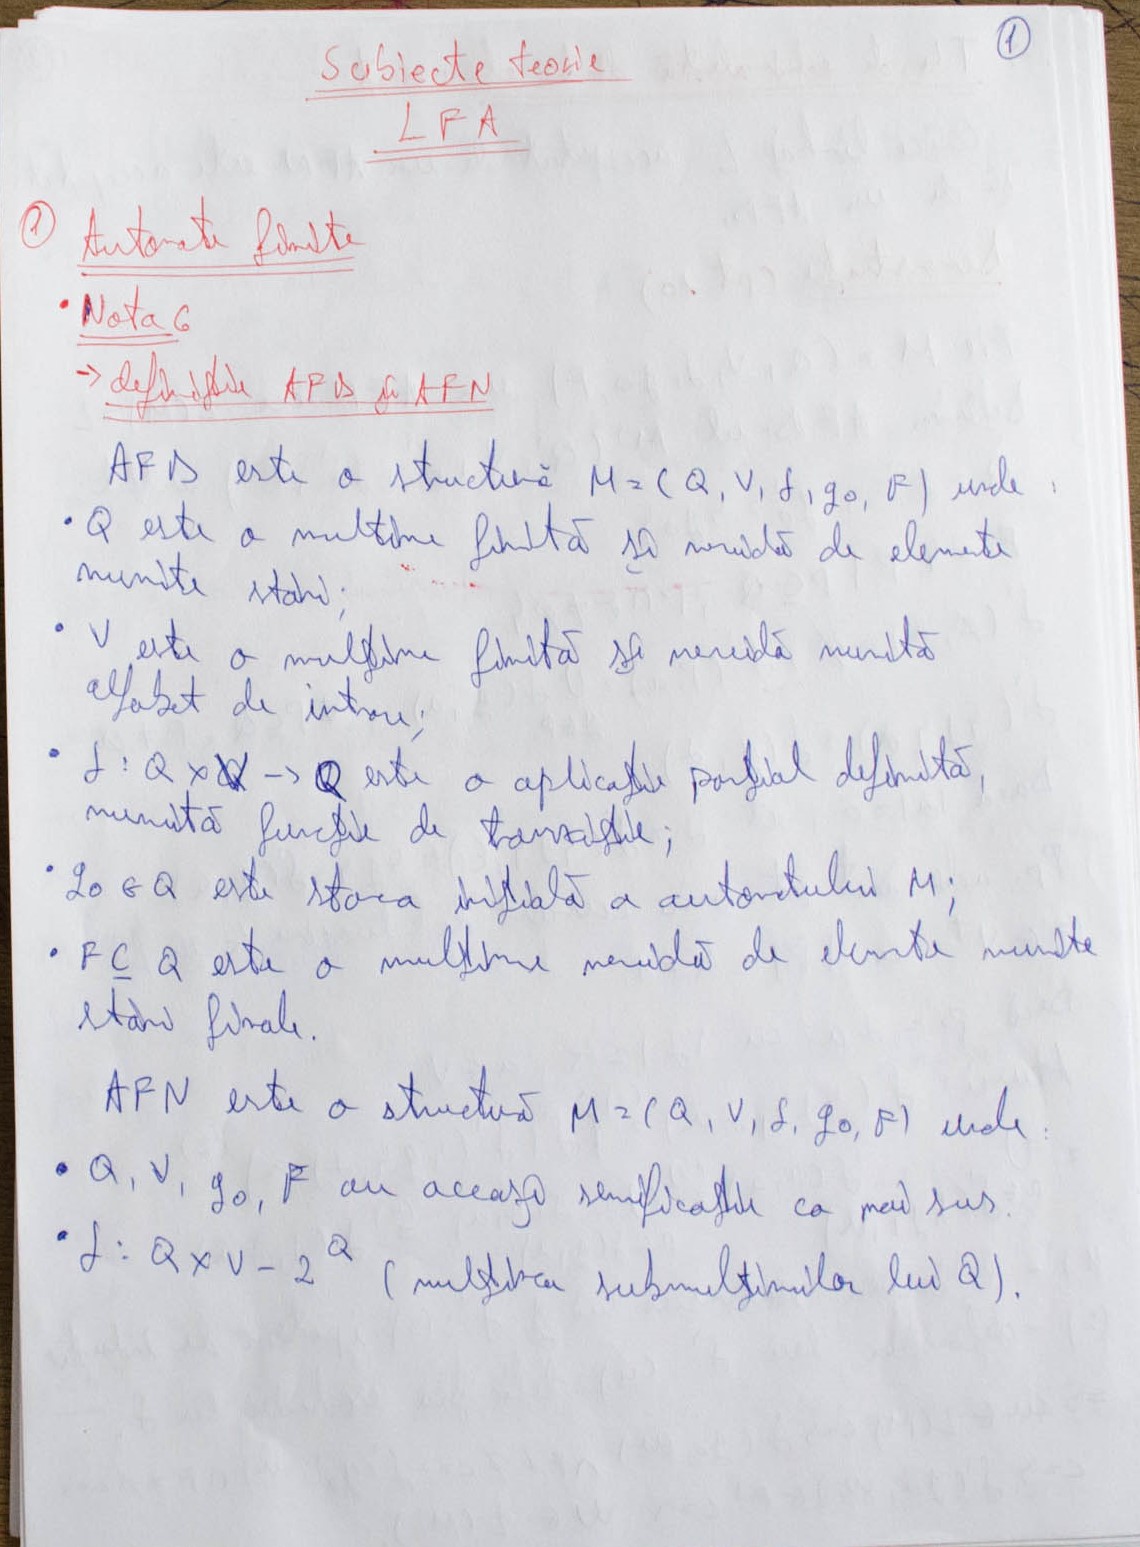 1
Subiecte teorie
LFA
1 Automate finite
• Nota 6
→ definiție AFD și AFN
AFD este o structură M=(Q, V, δ, q0, F) unde:
• Q este o multime finită și nevidă de elemente
numite stări;
• V este o mulțime finită și nevidă numită
alfabet de intrare;
• δ: Q × V → Q este o aplicație parțial definită,
numită funcție de tranziție;
• q0 ∈ Q este starea inițială a automatului M;
• F ⊆ Q este o mulțime nevidă de elemente numite
stări finale.
AFN este o structură M=(Q, V, δ, q0, F) unde:
• Q, V, q0, F au aceași semificație ca mai sus.
• δ: Q × V - 2^Q (mulțimea submulțimilor lui Q).